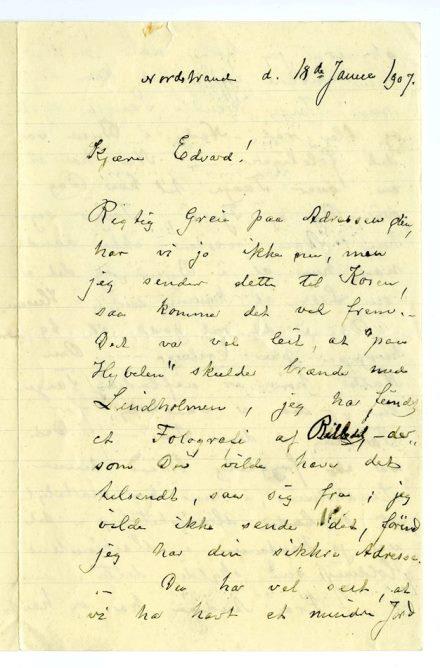 Nordstrand d. 18de Januar 1907.
Kjære Edvard!
Rigtig Greie paa Adressen din,
har vi jo ikke nu, men
jeg sender dette til Koren,
saa kommer det vel frem.-
Det var vel leit, at "paa
Hybelen" skulde brænde med
Lindholmen, jeg har fundet
et Fotografi af Billedet - der-
som Du vilde have det
tilsendt, saa sig fra; jeg
vilde ikke sende det, førend
jeg har din sikkre Adresse.
- Du har vel seet, at
vi har havt et mindre Jord